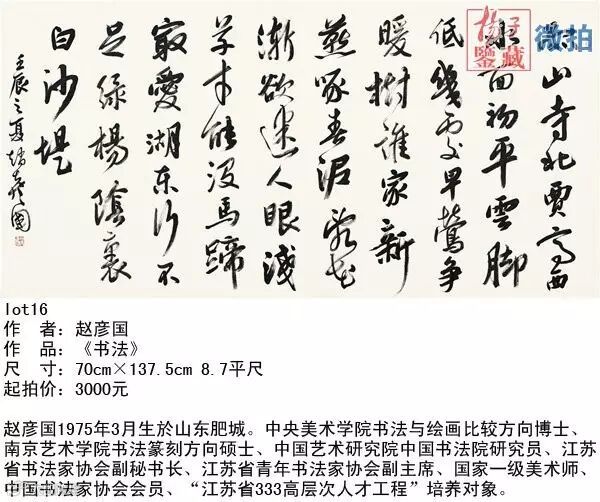 山寺北賈亭西
水面初平雲脚
低幾處早鶯爭
暖樹誰家新
燕啄春泥亂花
漸欲迷人眼淺
草才能没馬蹄
最愛湖東行不
足緑楊陰裏
白沙堤
壬辰之夏彦國
鉴藏
微拍
lot16
作 者：赵彦国
作 品：《书法》
尺 寸：70cm×137.5cm 8.7平尺
起拍价：3000元
赵彦国1975年3月生於山东肥城。中央美术学院书法与绘画比较方向博士、
南京艺术学院书法篆刻方向硕士、中国艺术研究院中国书法院研究员、江苏
省书法家协会副秘书长、江苏省青年书法家协会副主席、国家一级美术师、
中国书法家协会会员、“江苏省333高层次人才工程”培养对象。